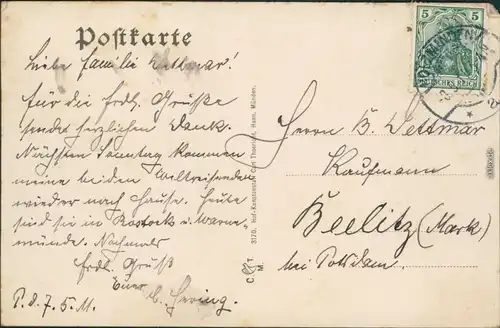 Postkarte
Liebe Familie Dettmar!
Für die frdl. Grüße
sendet herzlichen Dank.
Nächsten Sonntag kommen
meine beiden Weltreisenden
wieder nach Hause. Heute
sind sie in Rostock u. Warne-
münde. Nochmals
frdl. Gruß
Euer
Hering.
P. d. 7. 5. 11.
3170. Hof-Kunstanstalt Carl Thoericht, Hann. Münden.
C T
M.
5 5
DEUTSCHES REICH
MÜNDEN
Herrn B. Dettmar
Kaufmann
Beelitz (Mark)
bei Potsdam.